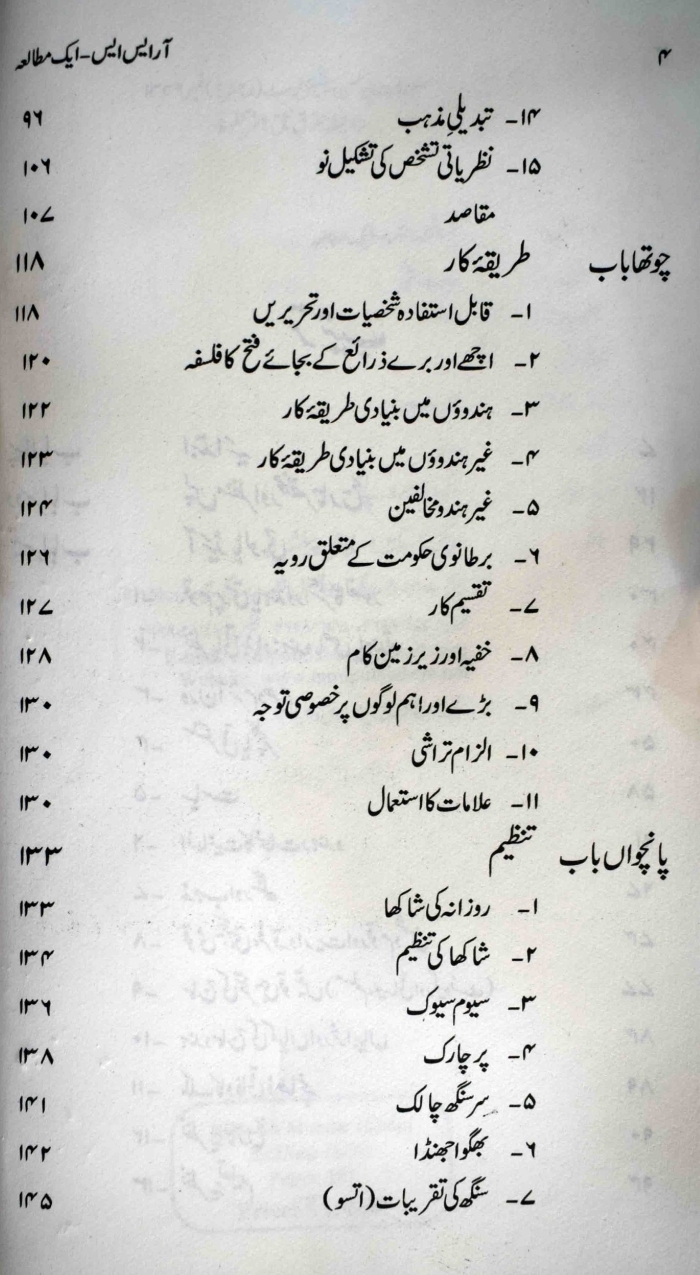 ۴ آر ایس ایس - ایک مطالعہ
۱۴- تبدیلیِ مذہب ۹۶
۱۵- نظریاتی تشخص کی تشکیل نو ۱۰۶
مقاصد ۱۰۷
چوتھا باب طریقۂ کار ۱۱۸
۱- قابل استفادہ شخصیات اور تحریریں ۱۱۸
۲- اچھے اور برے ذرائع کے بجائے فتح کا فلسفہ ۱۲۰
۳- ہندوؤں میں بنیادی طریقۂ کار ۱۲۲
۴- غیر ہندوؤں میں بنیادی طریقۂ کار ۱۲۳
۵- غیر ہندو مخالفین ۱۲۴
۶- برطانوی حکومت کے متعلق رویہ ۱۲۶
۷- تقسیم کار ۱۲۷
۸- خفیہ اور زیر زمین کام ۱۲۸
۹- بڑے اور اہم لوگوں پر خصوصی توجہ ۱۳۰
۱۰- الزام تراشی ۱۳۰
۱۱- علامات کا استعمال ۱۳۰
پانچواں باب تنظیم ۱۳۳
۱- روزانہ کی شاکھا ۱۳۳
۲- شاکھا کی تنظیم ۱۳۴
۳- سیوم سیوک ۱۳۶
۴- پرچارک ۱۳۸
۵- سرسنگھ چالک ۱۴۱
۶- بھگوا جھنڈا ۱۴۲
۷- سنگھ کی تقریبات (اتسو) ۱۴۵